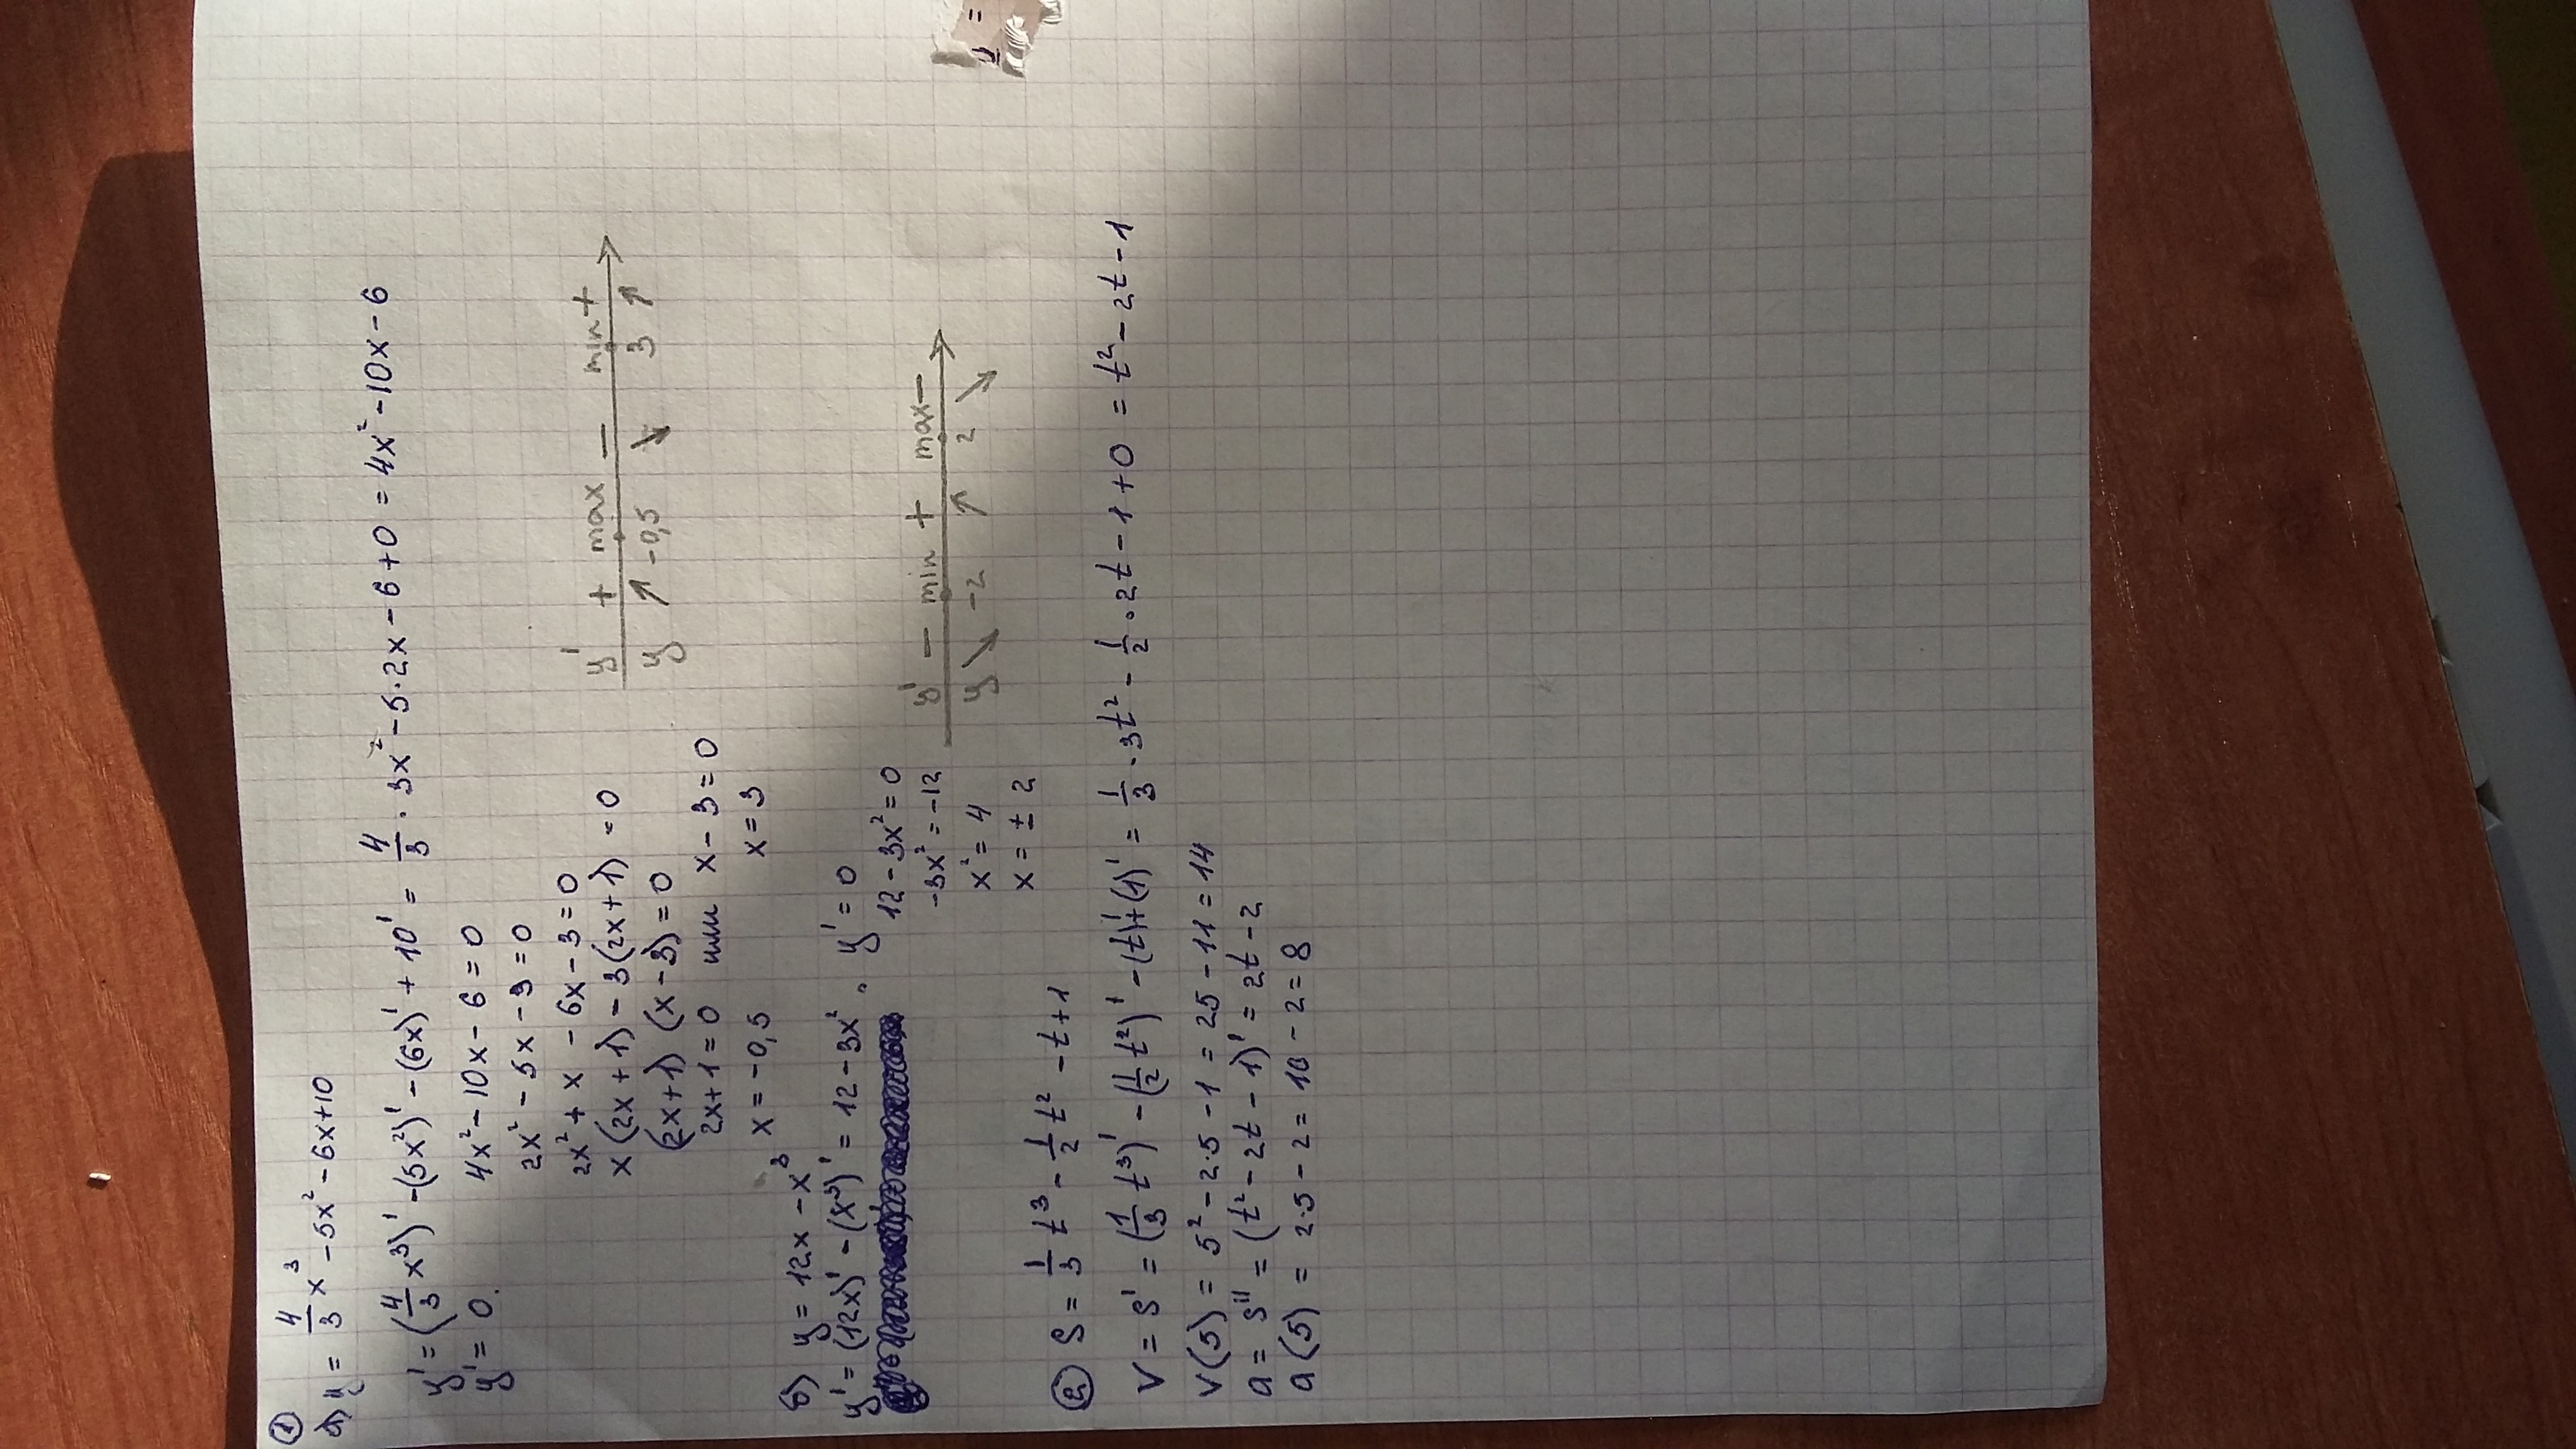 ①
а) y = 4/3 x³ - 5x² - 6x + 10
y' = (4/3 x³)' - (5x²)' - (6x)' + 10' = 4/3 · 3x² - 5·2x - 6 + 0 = 4x² - 10x - 6
y' = 0.
4x² - 10x - 6 = 0
2x² - 5x - 3 = 0
2x² + x - 6x - 3 = 0
x(2x+1) - 3(2x+1) = 0
(2x+1)(x-3) = 0
2x+1 = 0 или x - 3 = 0
x = -0,5 x = 3
y' + max − min +
y ↗ -0,5 ↘ 3 ↗
б) y = 12x - x³
y' = (12x)' - (x³)' = 12 - 3x². y' = 0
12 - 3x² = 0
-3x² = -12
x² = 4
x = ± 2
y' − min + max −
y ↘ -2 ↗ 2 ↘
② S = 1/3 t³ - 1/2 t² - t + 1
V = S' = (1/3 t³)' - (1/2 t²)' - (t)' + (1)' = 1/3 · 3t² - 1/2 · 2t - 1 + 0 = t² - 2t - 1
V(5) = 5² - 2·5 - 1 = 25 - 11 = 14
a = S'' = (t² - 2t - 1)' = 2t - 2
a(5) = 2·5 - 2 = 10 - 2 = 8